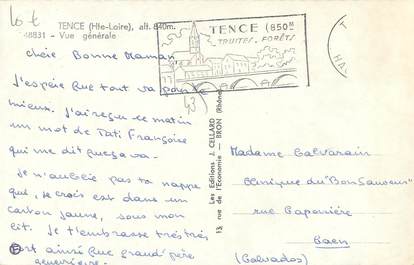 Lot
TENCE (Hte-Loire), alt. 840m.
48831 - Vue générale
TENCE (850M
TRUITES. FORÊTS
T
HA
cheie Bonne Maman,
J'espère que tout va pour le
mieux. J'ai reçu ce matin
un mot de Tati Françoise
qui me dit que ça va.
Je n'oublie pas ta nappe
que, je crois est dans un
carton jaune, sous mon
lit. Je t'embrasse très très
fort ainsi que grand père
geneviève.
43
Les Editions J. CELLARD
13, rue de l'Economie - BRON (Rhône)
Madame Calvarain
Clinique du "Bon Sauveur"
rue Caponière
Caen
(Calvados)